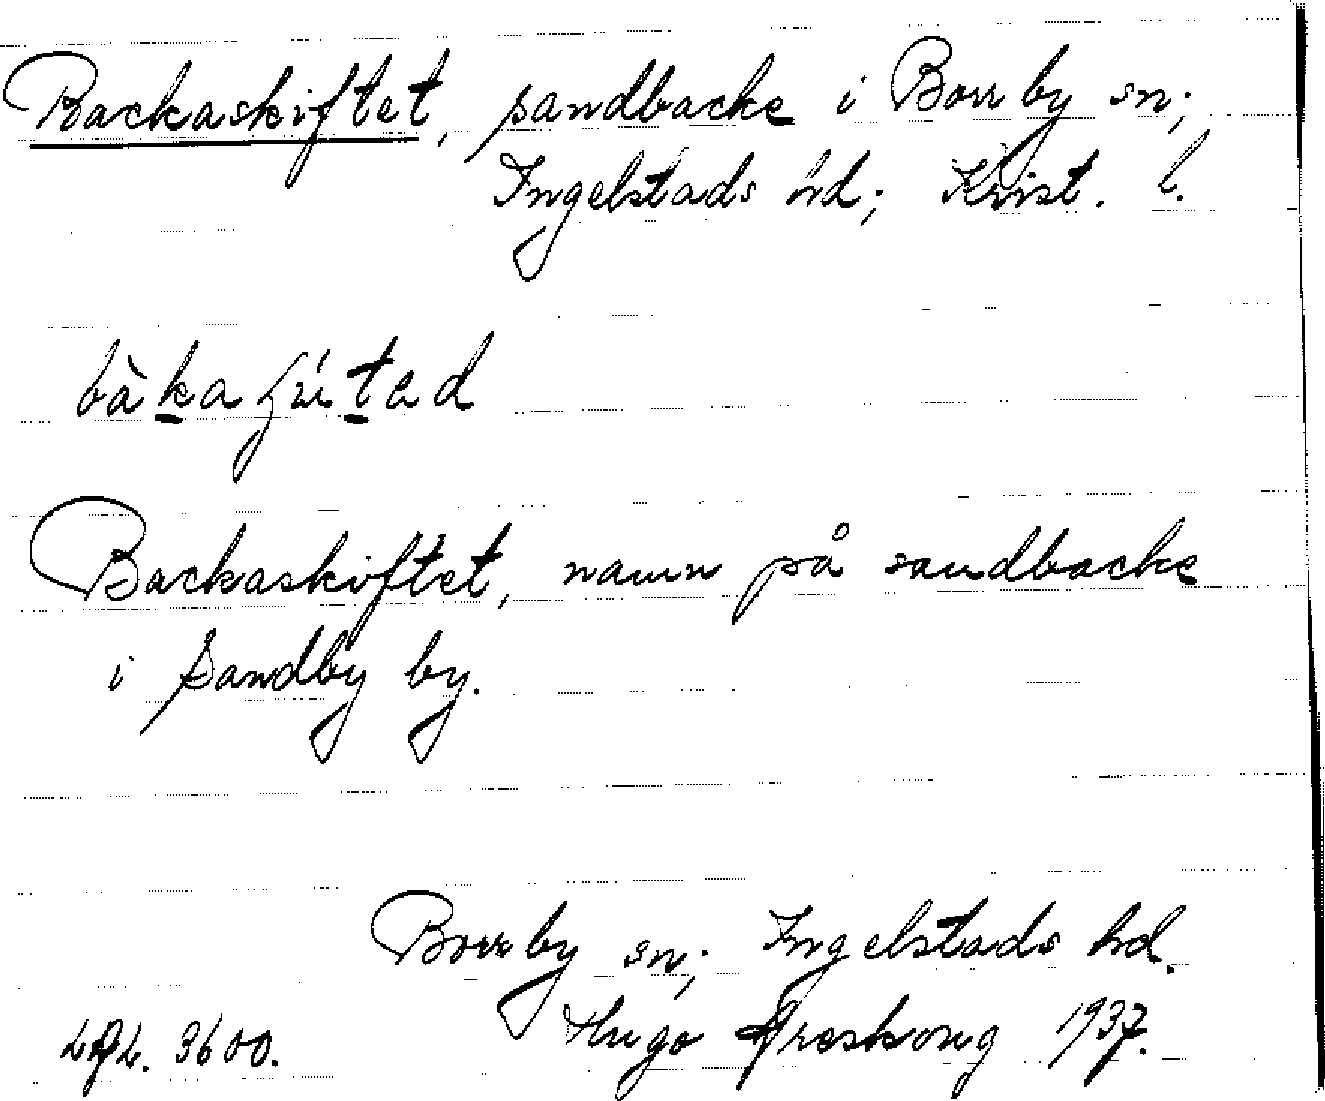 Backaskiftet, sandbacke i Borrby sn;
Ingelstads hd; Krist. l.
Backaskiftet, namn på sandbacke
i Sandby by.
Borrby sn; Ingelstads hd.
Hugo Areskoug 1937.
3600.